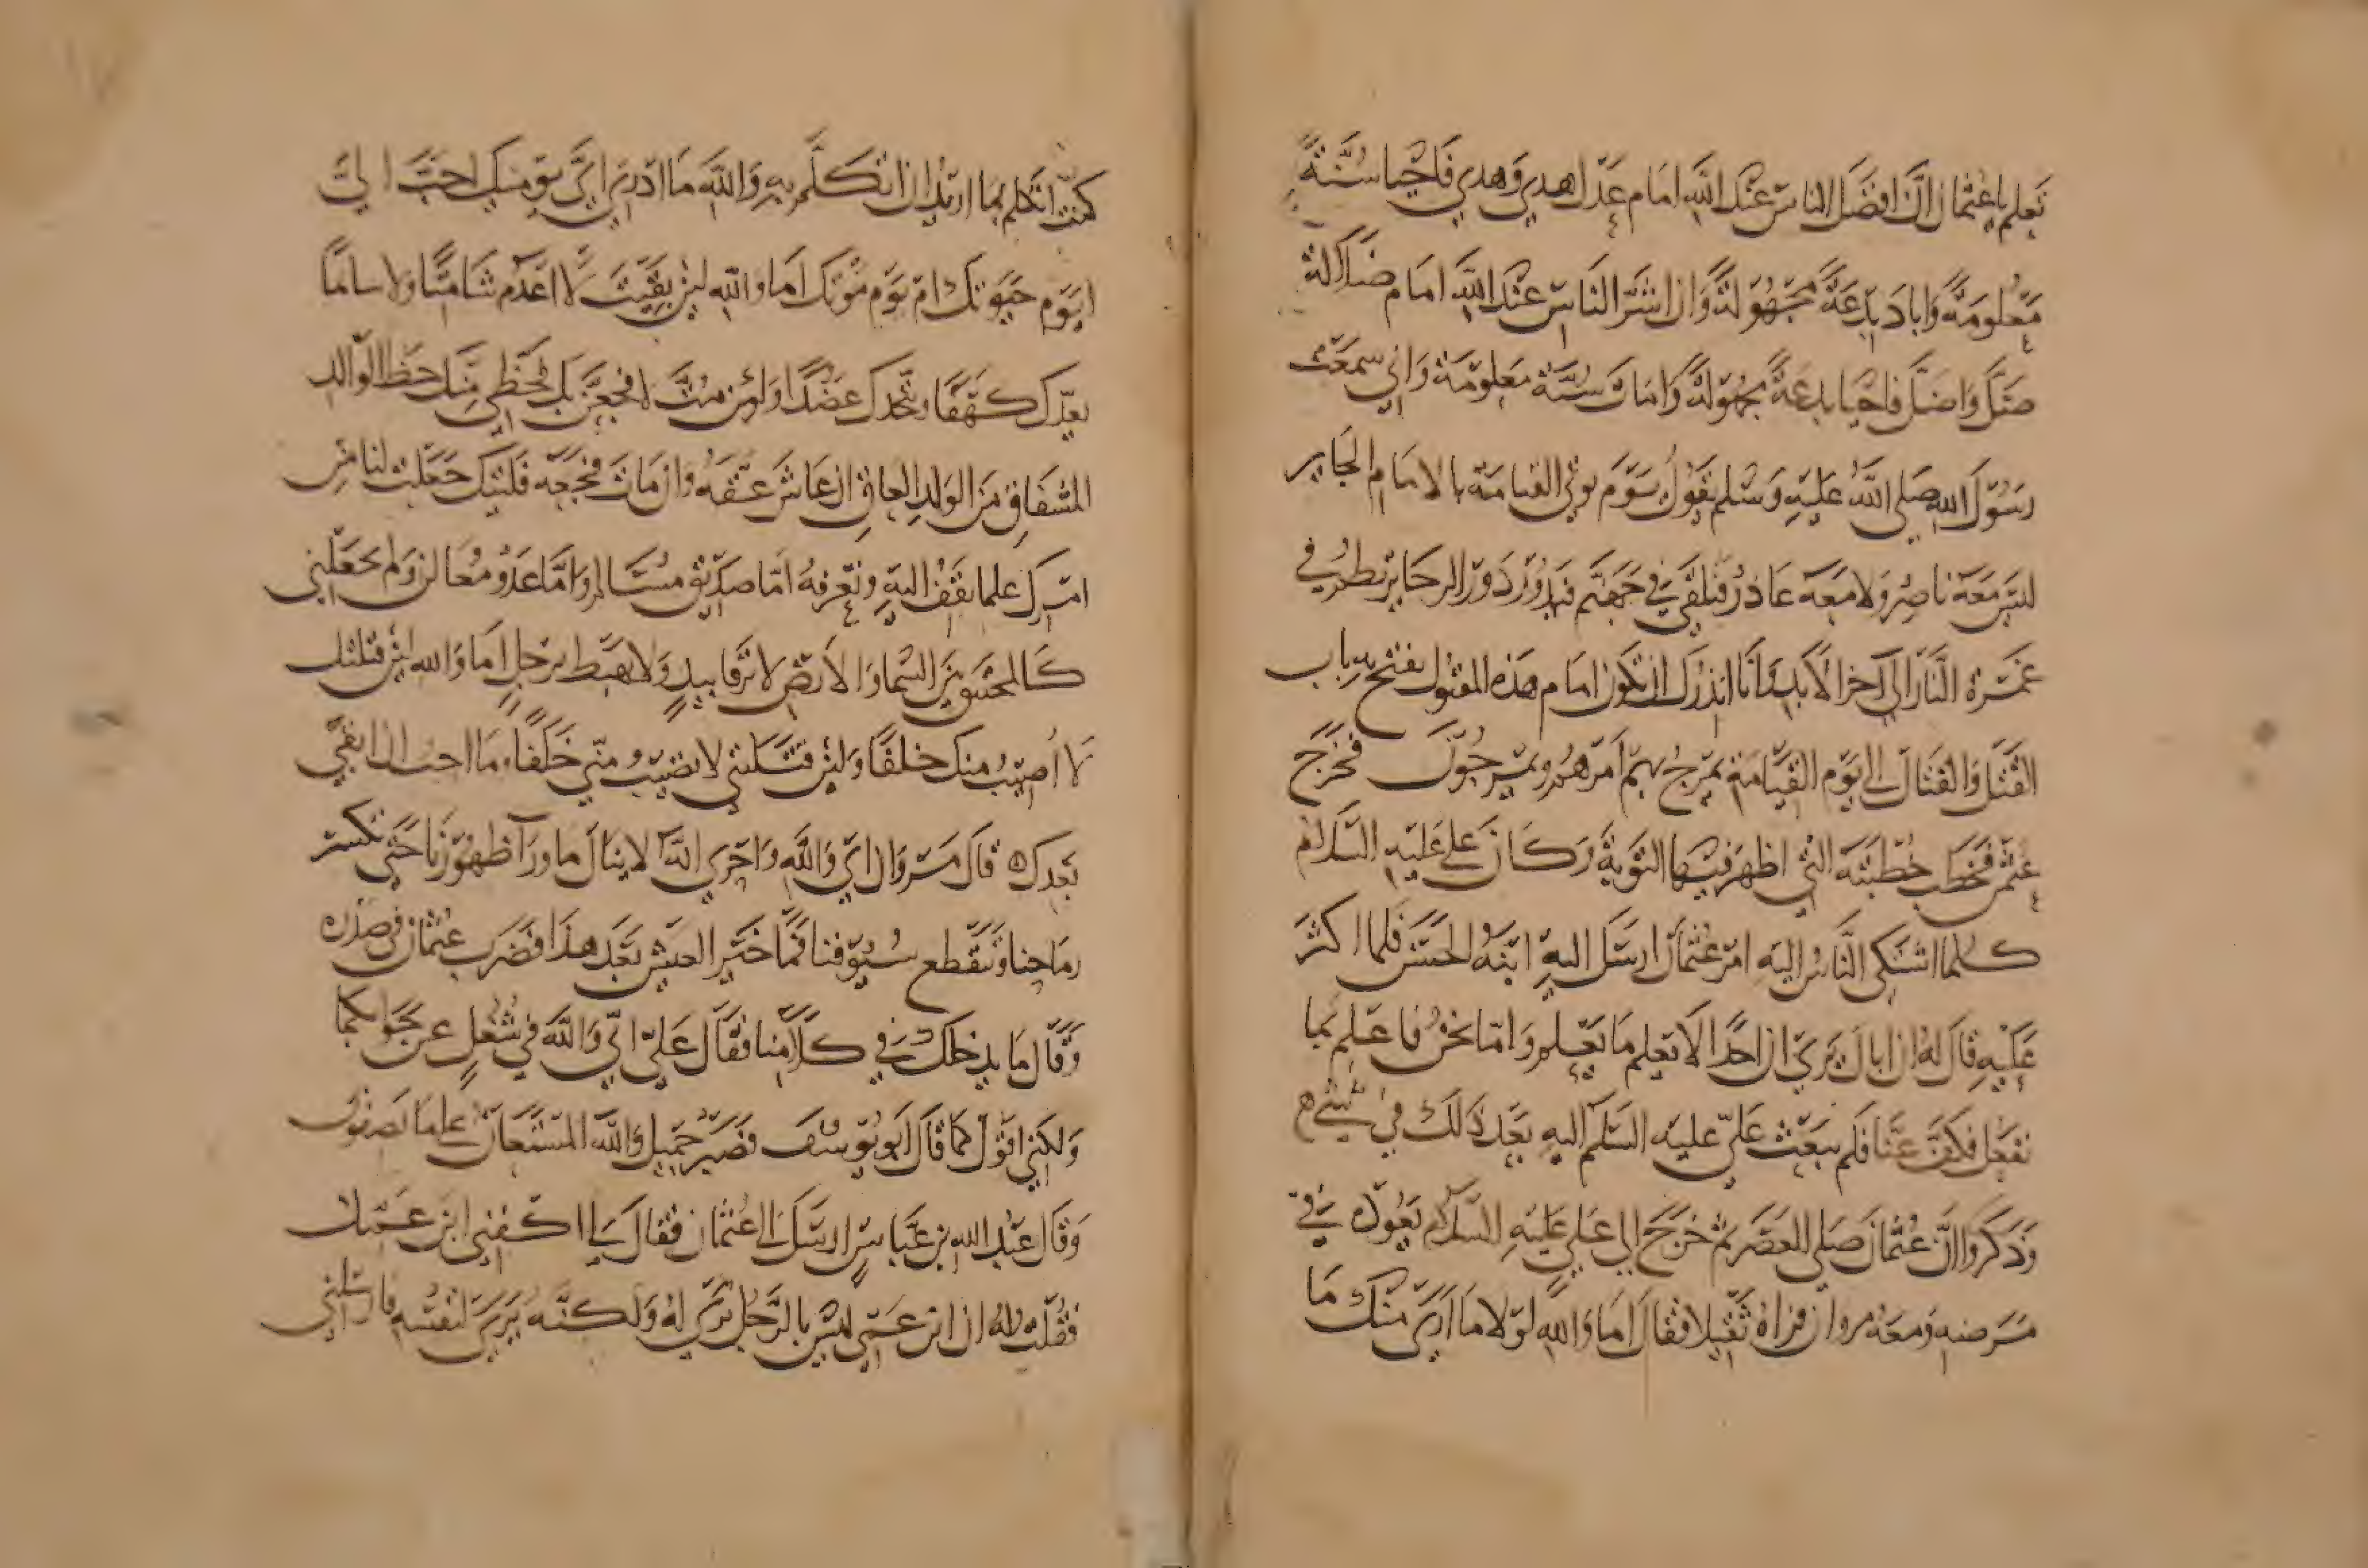 تعلم يا عثمان ان افضل الناس عند الله امام عدل هدي وهدي فاحيا سنة
معلومة واباد بدعة مجهولة وان اشر الناس عند الله امام ضلالة
ضل واضل فاحيا بدعة مجهولة وامات سنة معلومة واني سمعت
رسول الله صلى الله عليه وسلم يقول يوم يوتي القيامة بالامام الجاير
ليس معه ناصر ولا معه عاذر فيلقي في جهنم فيدور دور الرحا يرتطم في
غمرة النار الي اخر الابد وانا انذرك ان تكون امام هذه المقتول يفتح به باب
القتل والقتال الى يوم القيامة يمرج بهم امرهم ويمرجون فخرج
عثمن فخطب خطبته التي اظهر فيها التوبة وكان علي عليه السلام
كلما اشتكى الناس اليه امر عثمان ارسل اليه ابنه الحسن فلما اكثر
عليه قال له ان اباك يري ان احدا لا يعلم ما يعلم وانما نحن فاعلم بما
نفعل فكف عنا فلم يبعث علي عليه السلم اليه بعد ذلك في شيء ه
وذكروا ان عثمان صلى العصر ثم خرج الي علي عليه السلام يعوده في
مرضه ومعه مروان فراه ثقيلا فقال اما والله لولا ما ارى منك ما
كنت اتكلم بما اريد ان اتكلم به والله ما ادري اي يوميك احب الي
ايوم حيوتك ام يوم موتك اما والله لين بقيت لا اعدم شامتا ولا ساما
يعدك كهفا ويتخذك عضدا ولئن مت لافجعن بك فحظي منك حظ الوالد
المشفاق من الولد العاق ان عاش عقه وان مات فجعه فليتك جعلت لنا من
امرك علما نقف اليه ونعرفه اما صديق مسالم واما عدو معالن ولم تجعلني
كالمختنق بين السما والارض لا يرقا بيد ولا يهبط برجل اما والله لين قتلتك
لا اصيب منك خلفا ولين قتلتني لا تصيب مني خلفا وما احب ان ابقي
بعدك ه قال مروان اي والله واخري انه لا ينال ما ورآ ظهورنا حتى تكسر
رماحنا وتقطع سيوفنا فما خير العيش بعد هذا فضرب عثمان في صدره
وقال ما يدخلك في كلامنا فقال علي اني والله في شغل عن جوابكما
ولكني اقول كما قال ابو يوسف فصبر جميل والله المستعان على ما تصفون
وقال عبد الله بن عباس ارسل الى عثمان فقال لي اكفني ابن عمك
فقلت له ان ابن عمي ليس بالرجل يرى له ولكنه يرى لنفسه فارسلني